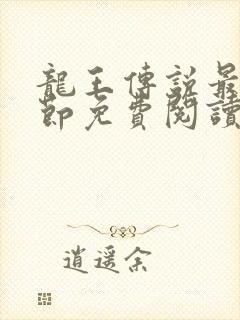 龍王傳說最
節免費閱讀
逍遥余